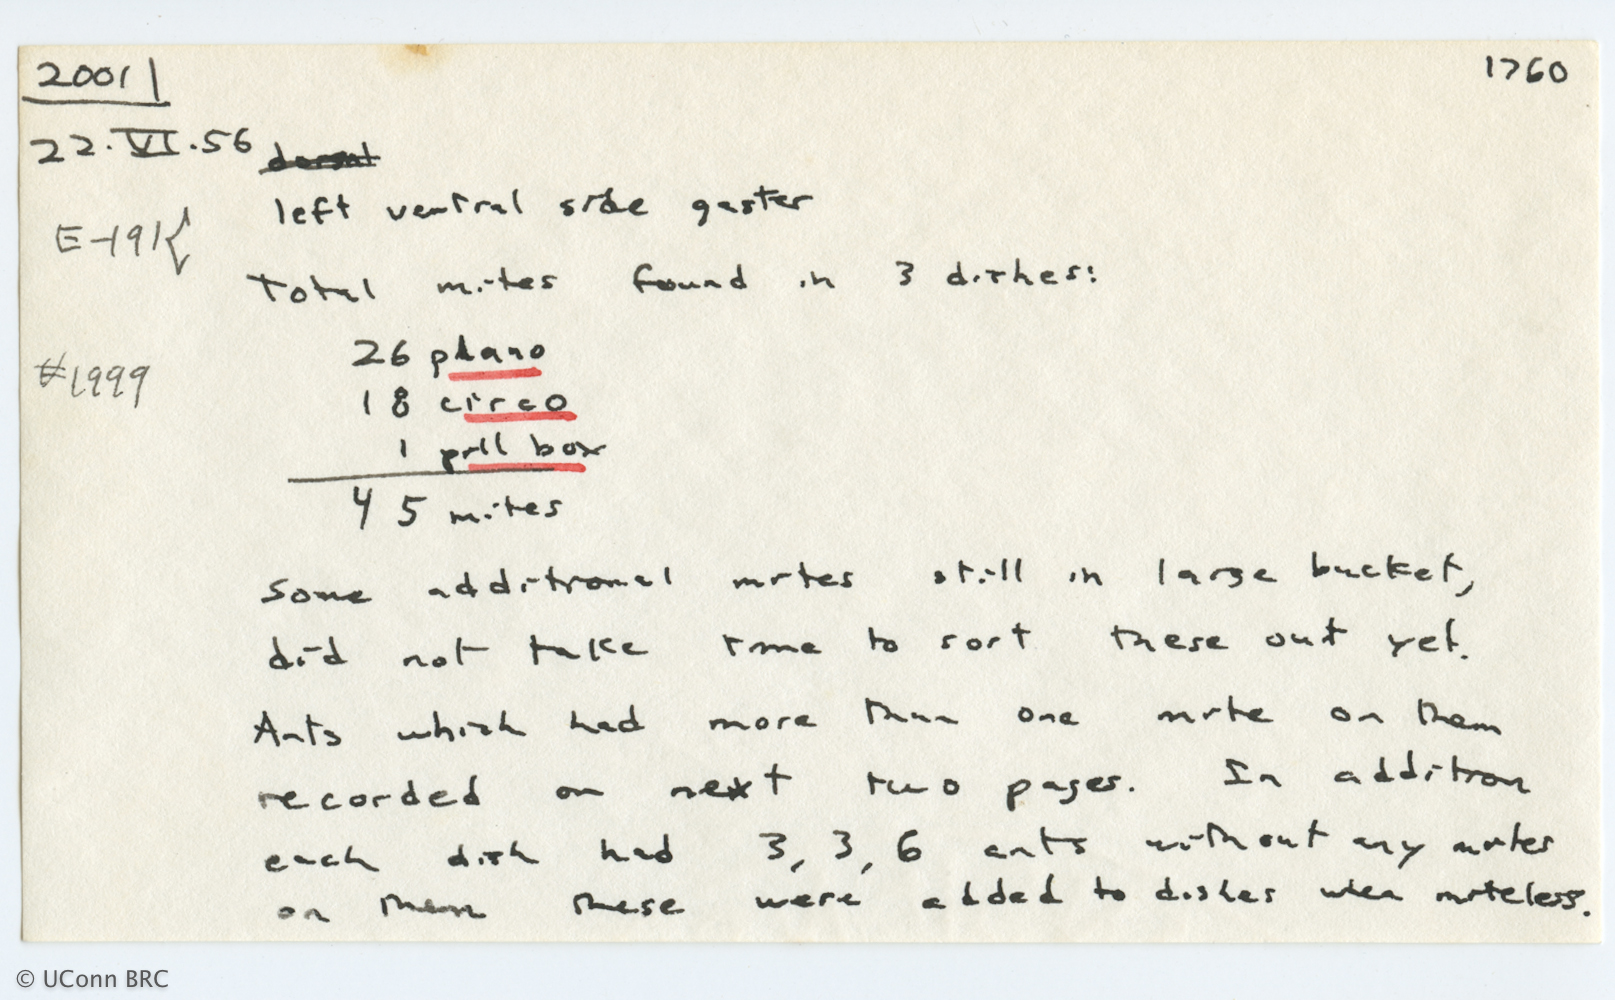 2001
1760
22.VI.56
left ventral side gaster
E-191{
Total mites found in 3 dishes:
26 plano
#1999
18 circo
1 pill box
45 mites
Some additional mites still in large bucket,
did not take time to sort these out yet.
Ants which had more than one mite on them
recorded on next two pages. In addition
each dish had 3, 3, 6 ants without any mites
on them these were added to dishes when miteless.
© UConn BRC